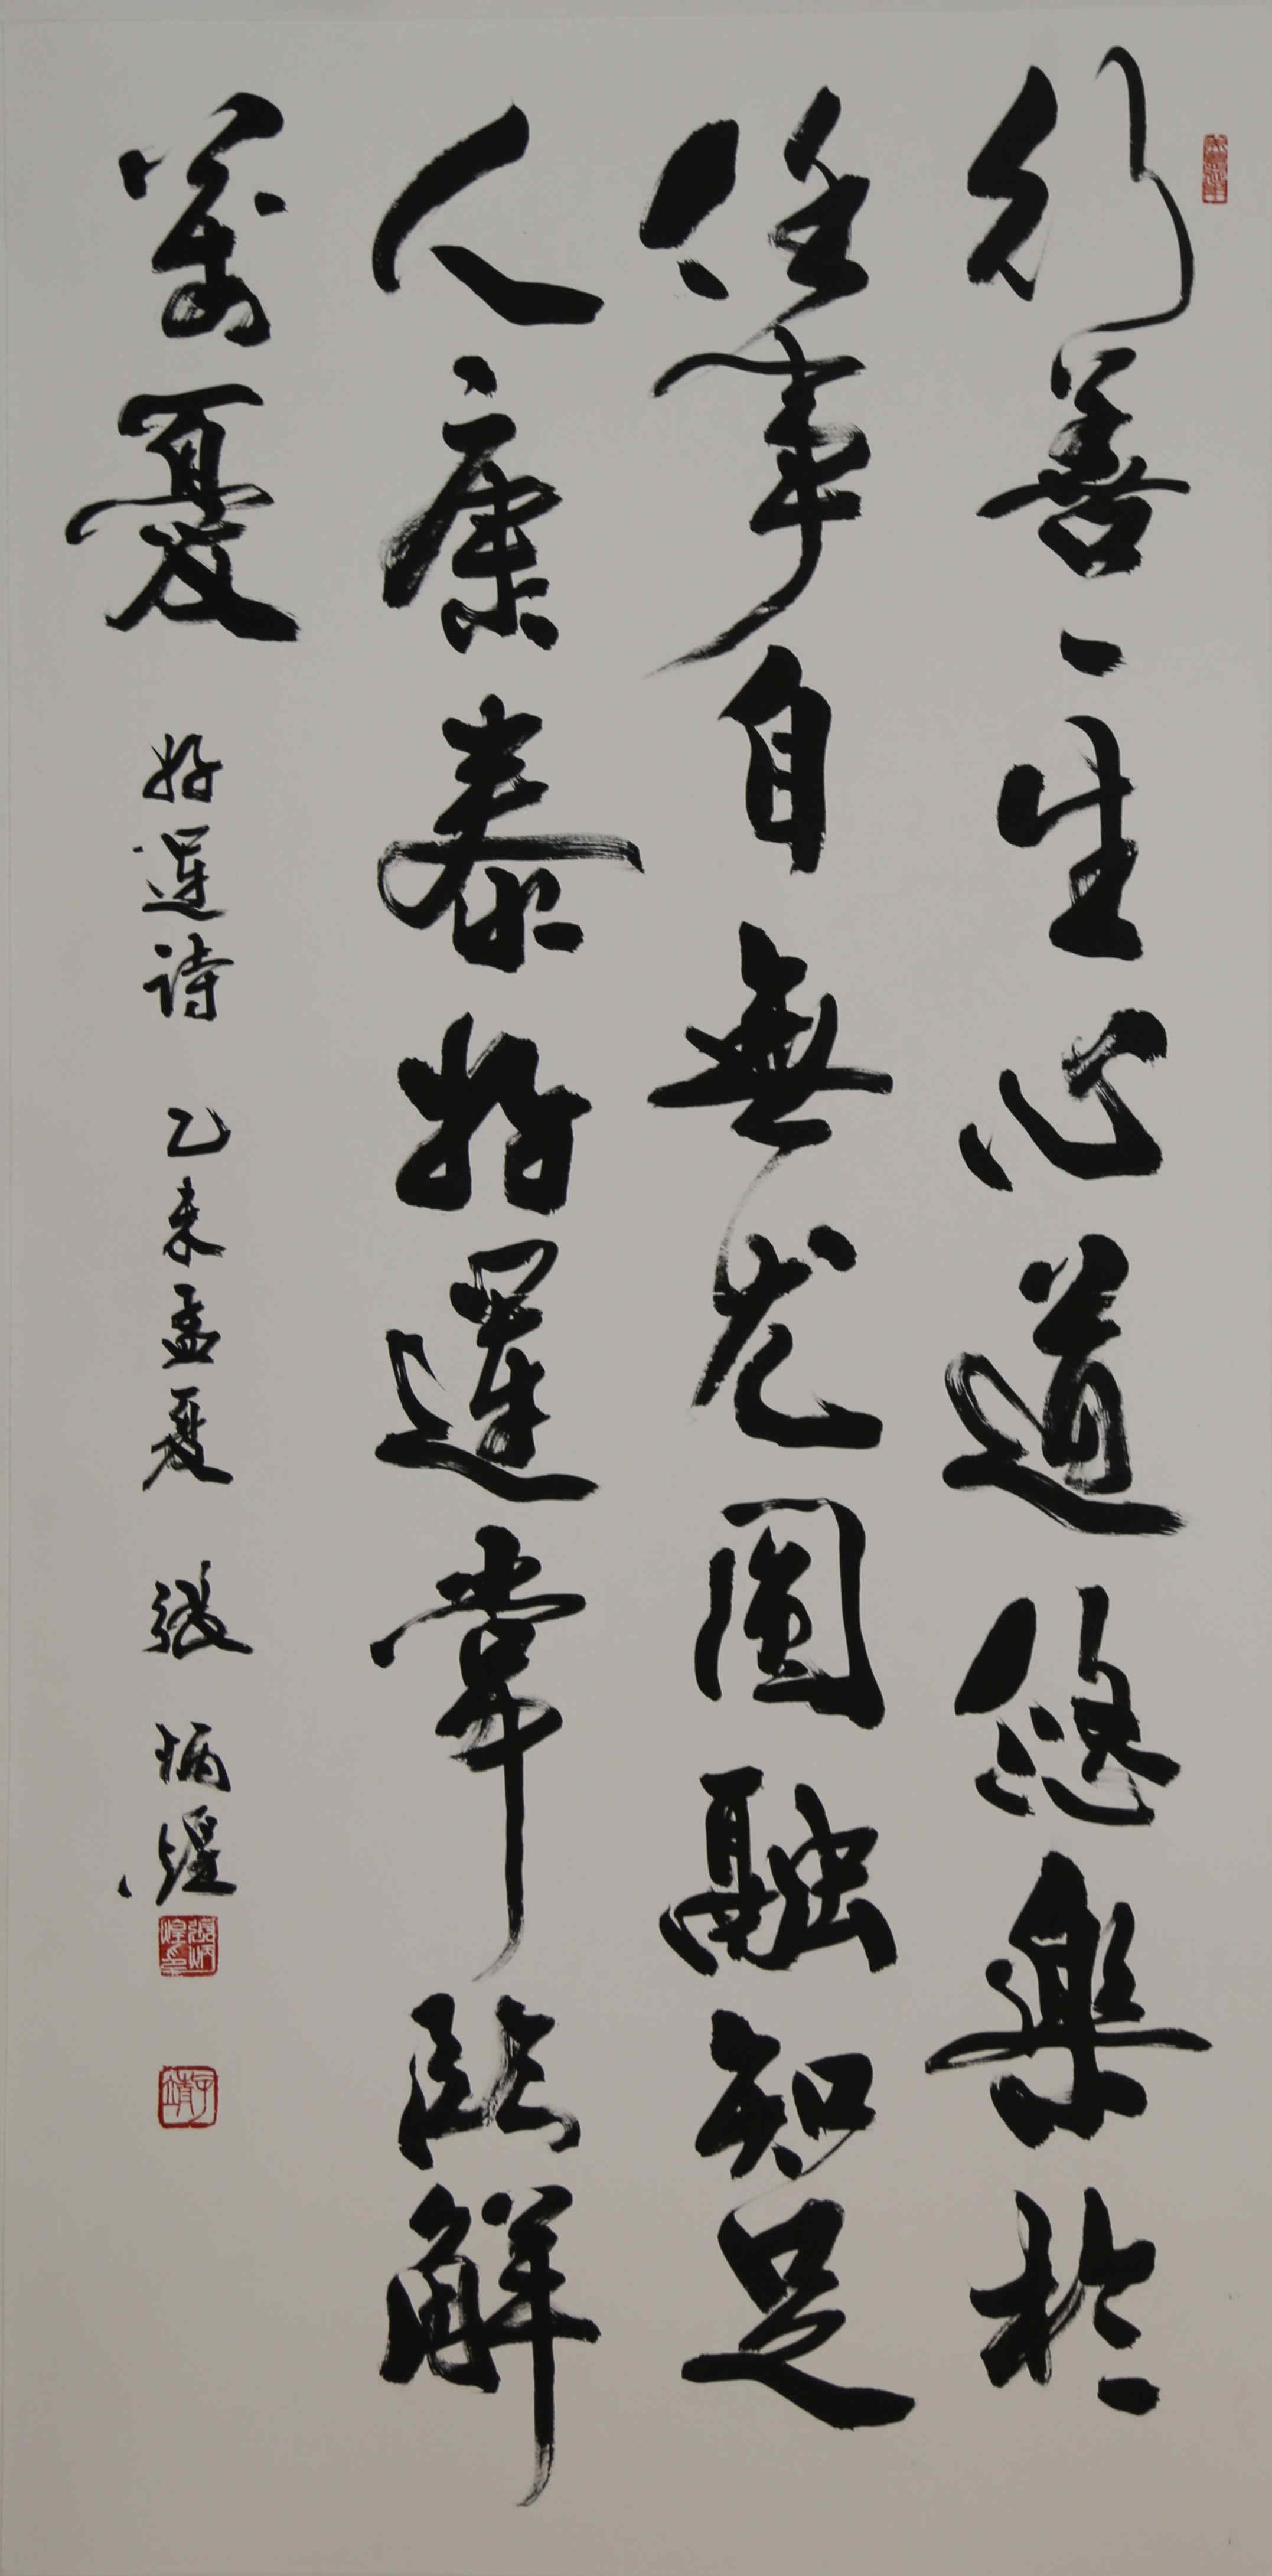 行善一生心道悠樂於
任事自無尤圓融知足
人康泰好運常臨解
萬憂 好運詩 乙未孟夏 張炳煌
張炳煌印